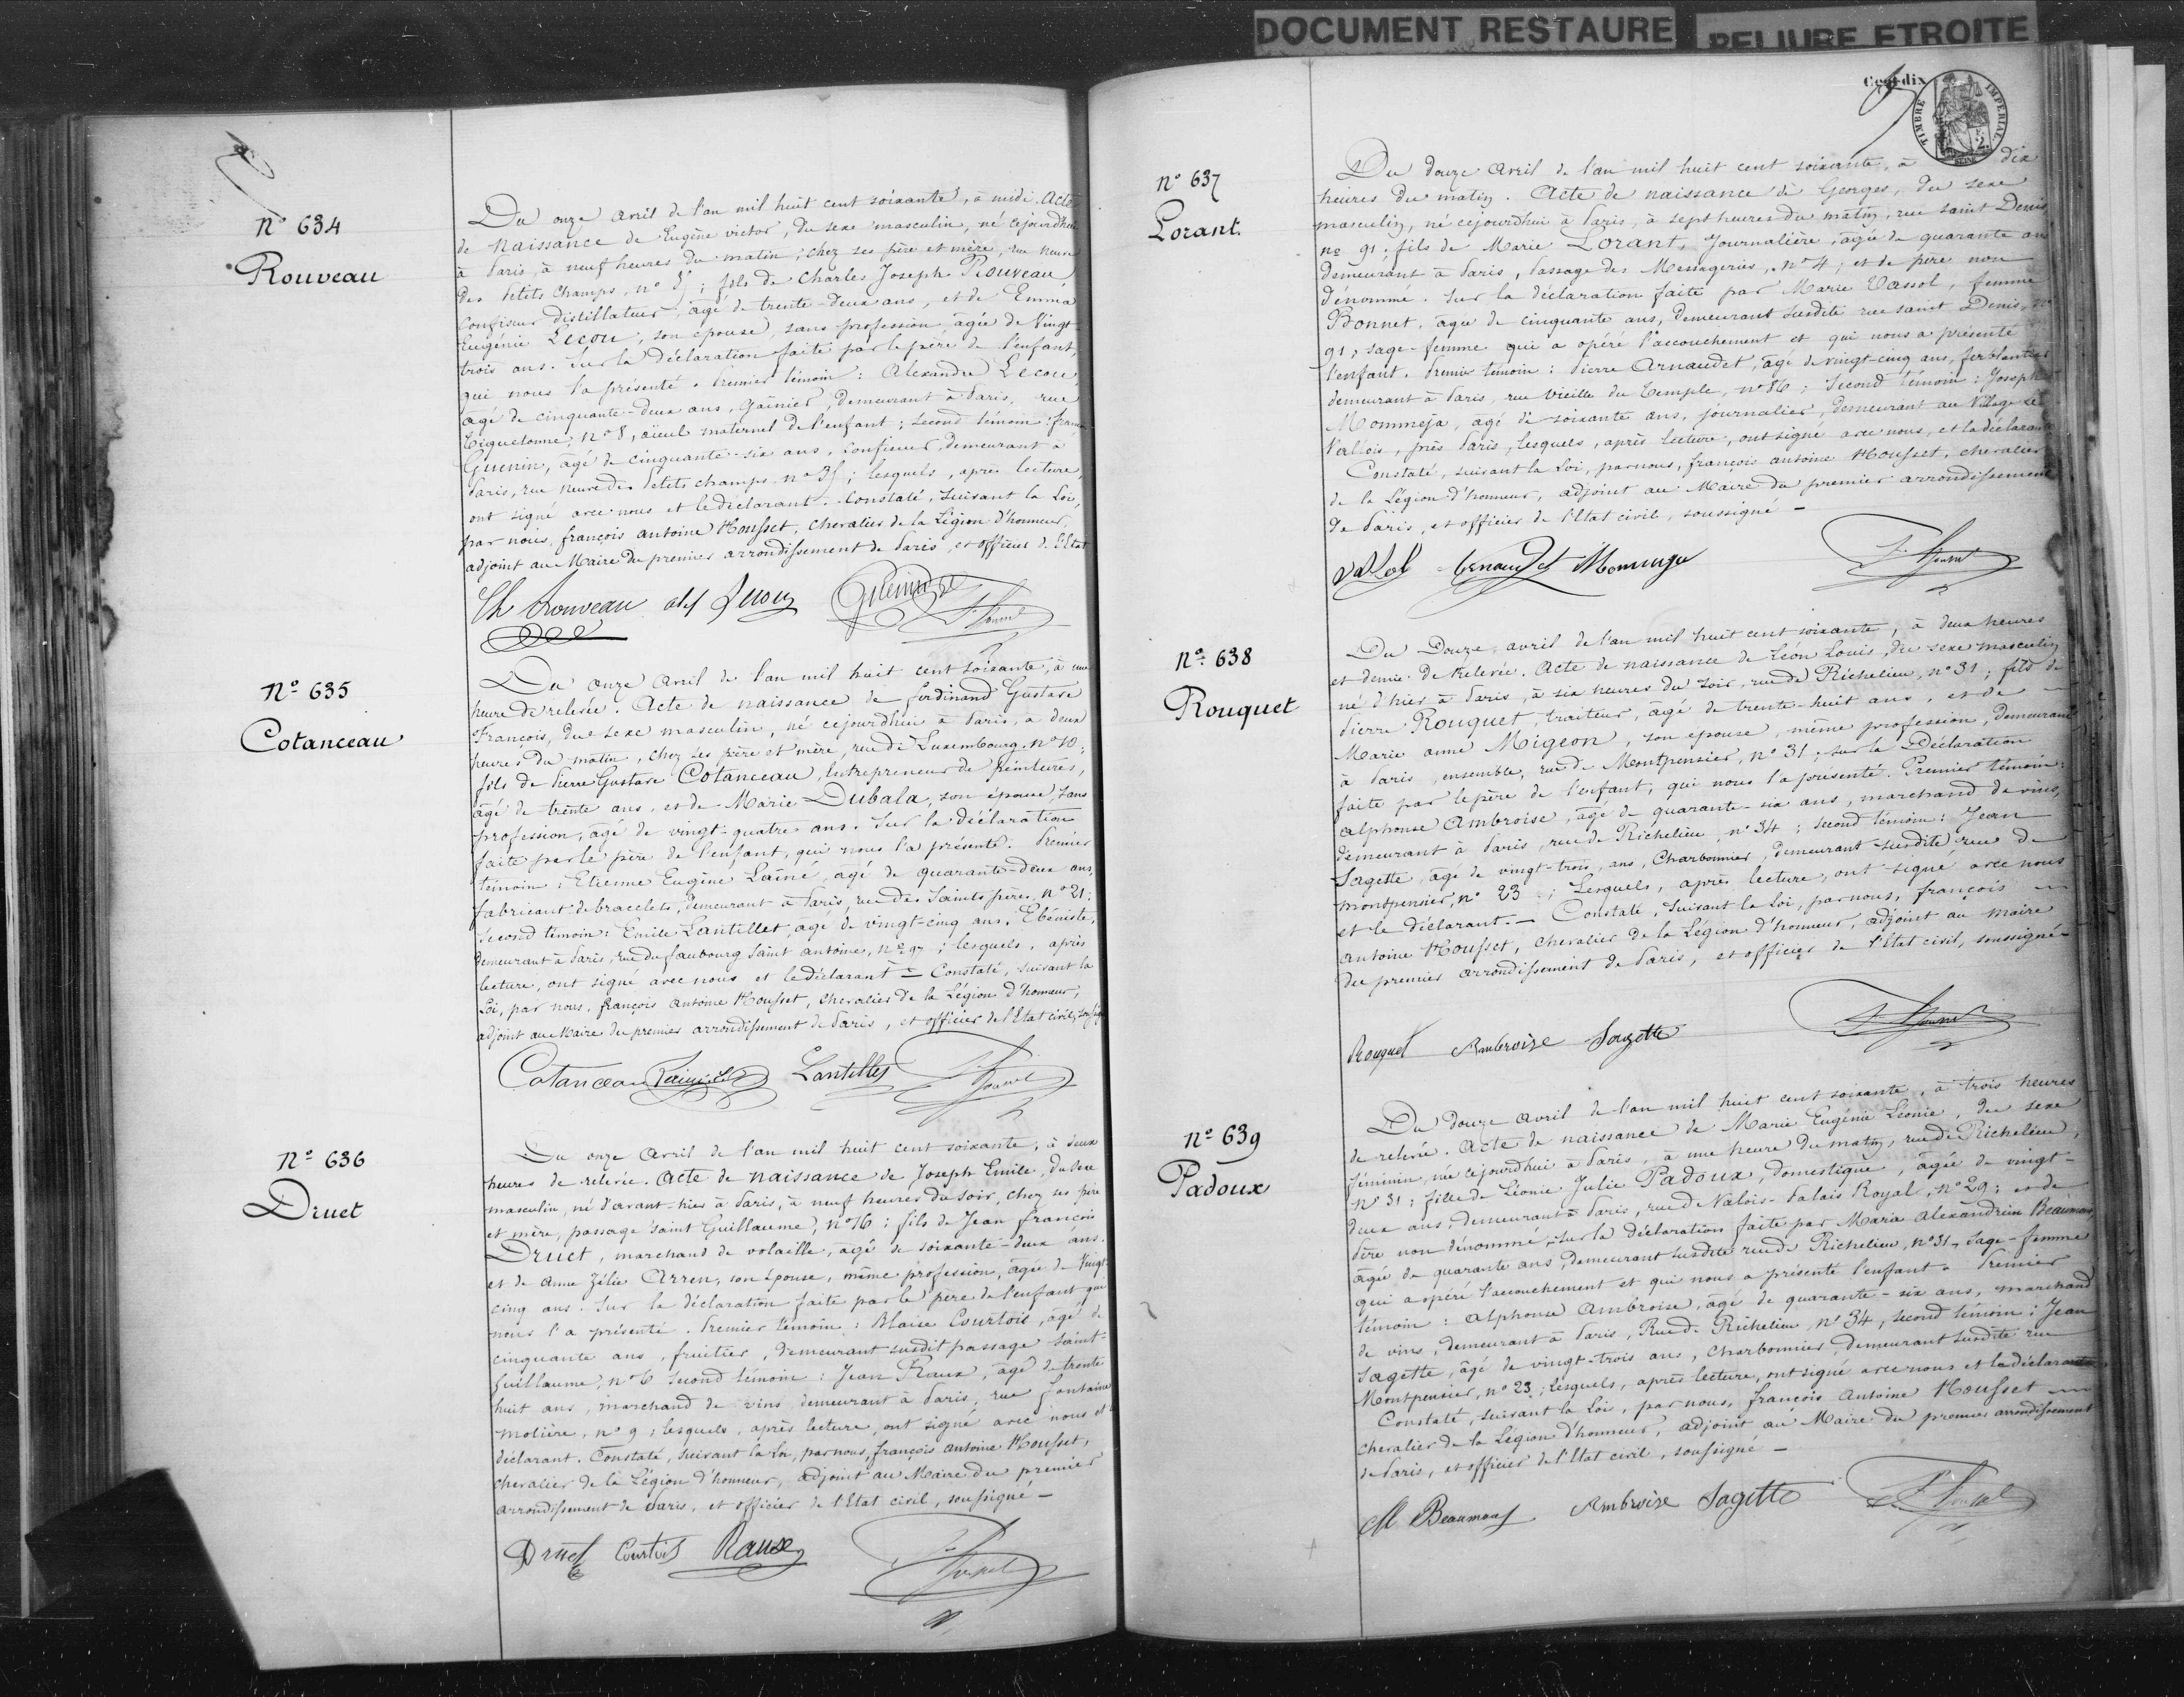 DOCUMENT RESTAURE
RELIURE ETROITE
TIMBRE IMPERIAL
2.
SEINE
N° 634
Rouveau
Du onze avril de l'an mil huit cent soixante, à midi. Acte
de Naissance de Eugène victor, du sexe masculin, né cejourdhui
à Paris, à neuf heures du matin, chez ses père et mère, rue neuve
des Petits Champs, n° ; fils de Charles Joseph Rouveau
Confiseur distillateur, âgé de trente-deux ans, et de Emma
Eugénie Lecou, son épouse, sans profession, âgée de Vingt-
trois ans. Sur la Déclaration faite par le père de l'enfant,
qui nous l'a présenté. Premier témoin : Alexandre Lecou,
âgé de cinquante-deux ans, Gaînier, demeurant à Paris, rue
Tiquetonne, N° 8, aïeul maternel de l'enfant ; second témoin :
Guenin, âgé de cinquante-six ans, Confiseur, demeurant à
Paris, rue neuve des Petits champs n° ; lesquels, après lecture,
ont signé avec nous et le déclarant. Constaté, suivant la Loi,
par nous, françois antoine Housset, chevalier de la Légion d'honneur,
adjoint au Maire du premier arrondissement de Paris, et officier de l'Etat
Ch Rouveau Lecou Guenin
N° 635
Cotanceau
Du onze avril de l'an mil huit cent soixante, à une
heure de relevée. Acte de naissance de ferdinand Gustave
François, du sexe masculin, né cejourdhui à Paris, à deux
heures du matin, chez ses père et mère, rue de Luxembourg, n° 10 ;
fils de Pierre Gustave Cotanceau, Entrepreneur de peintures,
âgé de trente ans, et de Marie Dubala, son épouse, sans
profession, âgé de vingt-quatre ans. Sur la déclaration
faite par le père de l'enfant, qui nous l'a présenté. Premier
témoin : Etienne Eugène Lainé, âgé de quarante-deux ans,
fabricant de bracelets, demeurant à Paris, rue des Saints pères, N° 21 ;
Second témoin : Emile Lantillet, âgé de vingt-cinq ans, Ebéniste,
demeurant à Paris, rue du faubourg Saint antoine, n° 97 ; lesquels, après
lecture, ont signé avec nous et le déclarant - Constaté, suivant la
Loi, par nous, françois antoine Housset, chevalier de la Légion d'honneur,
adjoint au Maire du premier arrondissement de Paris, et officier de l'Etat civil,
Cotanceau Lainé Lantillet
N° 636
Druet
Du onze avril de l'an mil huit cent soixante, à deux
heures de relevée. Acte de naissance de Joseph Emile, du sexe
masculin, né d'avant-hier à Paris, à neuf heures du soir, chez ses père
et mère, passage Saint Guillaume, n° 16 ; fils de Jean françois
Druet, marchand de volaille, âgé de soixante-deux ans,
et de Anne Zélie Arren, son épouse, même profession, âgée de Vingt-
cinq ans. Sur la déclaration faite par le père de l'enfant qui
nous l'a présenté. Premier témoin : Blaise Courtois, âgé de
cinquante ans, fruitier, demeurant susdit passage saint-
Guillaume, n° 6 Second témoin : Jean Raux, âgé de trente
huit ans, marchand de vins demeurant à Paris, rue fontaine
molière, n° 9 ; lesquels, après lecture, ont signé avec nous et
déclarant. Constaté, suivant la Loi, par nous, françois antoine Housset,
chevalier de la Légion d'honneur, adjoint au Maire du premier
arrondissement de Paris, et officier de l'Etat civil, soussigné -
Druet Courtois Raux
N° 637
Lorant.
Du douze Avril de l'an mil huit cent soixante, à dix
heures du matin. Acte de naissance de Georges, du sexe
masculin, né cejourdhui à Paris, à sept heures du matin, rue saint Denis
n° 91, fils de Marie Lorant, Journalière, âgée de quarante ans
demeurant à Paris, Passage des Messageries, N° 4 ; et de père non
dénommé. Sur la déclaration faite par Marie Vassol, femme
Bonnet, âgée de cinquante ans, demeurant susdite rue saint Denis, n°
91, sage-femme qui a opéré l'accouchement et qui nous a présenté
l'enfant. Premier témoin : Pierre Arnaudet, âgé de vingt-cinq ans, ferblantier
demeurant à Paris, rue vieille du Temple, n° 86 ; Second témoin : Joseph
Mommeja, âgé de soixante ans, journalier, demeurant au Village Le
Vallois, près Paris, lesquels, après lecture, ont signé avec nous, et la déclarante
Constaté, suivant la Loi, par nous, françois antoine Housset, chevalier
de la Légion d'honneur, adjoint au Maire du premier arrondissement
de Paris, et officier de l'Etat civil, soussigné -
Vassol Arnaudet Mommeja
N° 638
Rouquet
Du Douze avril de l'an mil huit cent soixante, à deux heures
et demie de Relevée. Acte de naissance de Léon Louis, du sexe masculin
né d'hier à Paris, à six heures du soir, rue de Richelieu, n° 31, fils de
Pierre Rouquet, traiteur, âgé de trente-huit ans, et de
Marie anne Migeon, son épouse, même profession, demeurant
à Paris, ensemble, rue de Montpensier, n° 31 ; sur la Déclaration
faite par le père de l'enfant, qui nous l'a présenté. Premier témoin :
alphonse Ambroise, âgé de quarante-six ans, marchand de vins,
demeurant à Paris, rue de Richelieu, n° 34 ; second témoin : Jean
Sagette, âgé de vingt-trois ans, Charbonnier, demeurant susdite rue de
Montpensier, n° 23 ; Lesquels, après lecture, ont signé avec nous
et le déclarant. - Constaté, suivant la Loi, par nous, françois
antoine Housset, chevalier de la Légion d'honneur, adjoint au maire
du premier arrondissement de Paris, et officier de l'Etat civil, soussigné
Rouquet Ambroise Sagette
N° 639
Padoux
Du douze avril de l'an mil huit cent soixante, à trois heures
de relevée. Acte de naissance de Marie Eugénie Léonie, du sexe
féminin, née cejourdhui à Paris, à une heure du matin, rue de Richelieu,
N° 31 ; fille de Léonie Julie Padoux, domestique âgée de vingt-
deux ans, demeurant à Paris, rue de Valois-Palais Royal, n° 29 ; et de
père non dénommé, sur la déclaration faite par Marie Alexandrine Beaumont,
âgée de quarante ans, demeurant susdite rue de Richelieu, n° 31, sage-femme
qui a opéré l'accouchement et qui nous a présenté l'enfant. Premier
témoin : alphonse Ambroise, âgé de quarante-six ans, marchand
de vins, demeurant à Paris, Rue de Richelieu, n° 34, second témoin : Jean
Sagette, âgé de vingt-trois ans, charbonnier, demeurant susdite rue
Montpensier, n° 23, lesquels, après lecture, ont signé avec nous et la déclarante
Constaté, suivant la Loi, par nous, françois Antoine Housset
chevalier de la Légion d'honneur, adjoint au Maire du premier arrondissement
de Paris, et officier de l'Etat civil, soussigné -
M Beaumont Ambroise Sagette